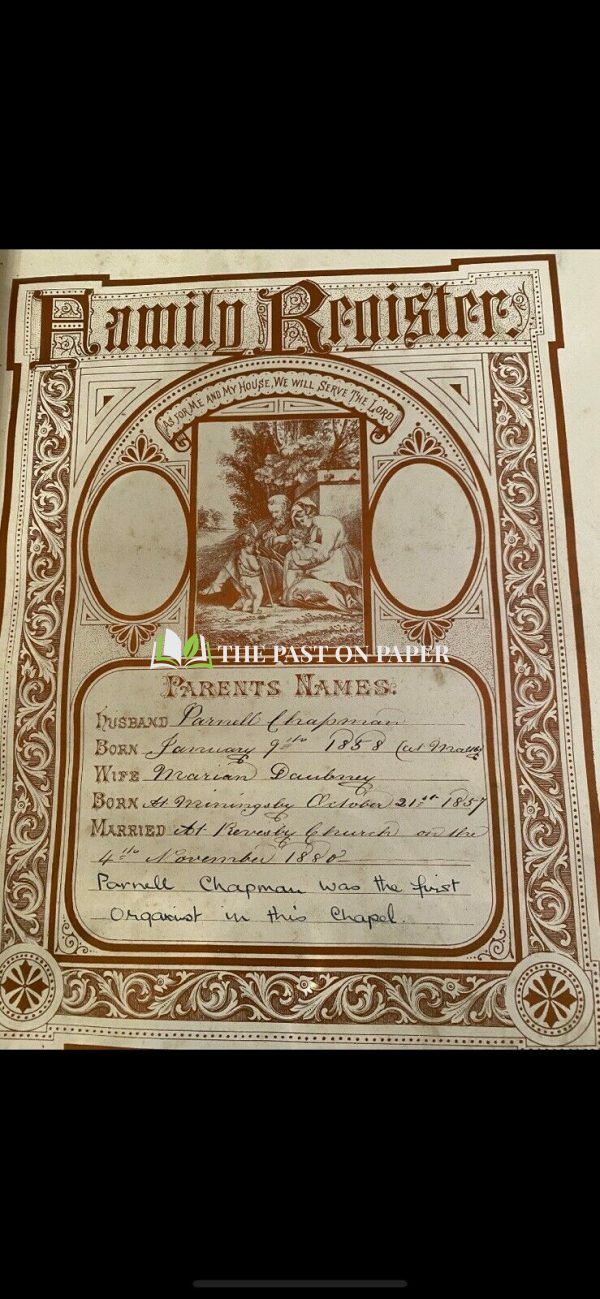 Family Register.
AS FOR ME AND MY HOUSE, WE WILL SERVE THE LORD.
THE PAST ON PAPER
PARENTS NAMES.
HUSBAND Parnell Chapman
BORN January 9th 1858 (at
WIFE Marian Daubney
BORN At Miningsby October 21st 1857
MARRIED At Revesby Church on the
4th November 1880
Parnell Chapman was the first
Organist in this Chapel.